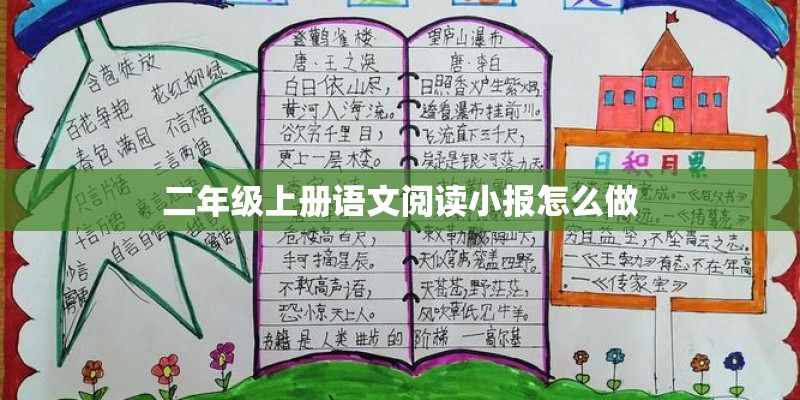 含苞欲放
花红柳绿
百花争艳
不言不语
春色满园
三言两语
只言片语
千言万语
自言自语
少言
登鹳雀楼
唐·王之涣
白日依山尽，
黄河入海流。
欲穷千里目，
更上一层楼。
二年级上册语文阅读小报怎么做
危楼高百尺，
手可摘星辰。
不敢高声语，
恐惊天上人。
望庐山瀑布
唐·李白
日照香炉生紫烟，
遥看瀑布挂前川。
飞流直下三千尺，
疑是银河落九天
敕勒川，阴山下，
天似穹庐笼盖四野。
天苍苍，野茫茫，
风吹草低见牛羊。
书籍是人类进步的阶梯 —高尔基
日积月累
穷且益坚，不坠青云之志。
—《王勃》有志不在年高
—《传家宝》